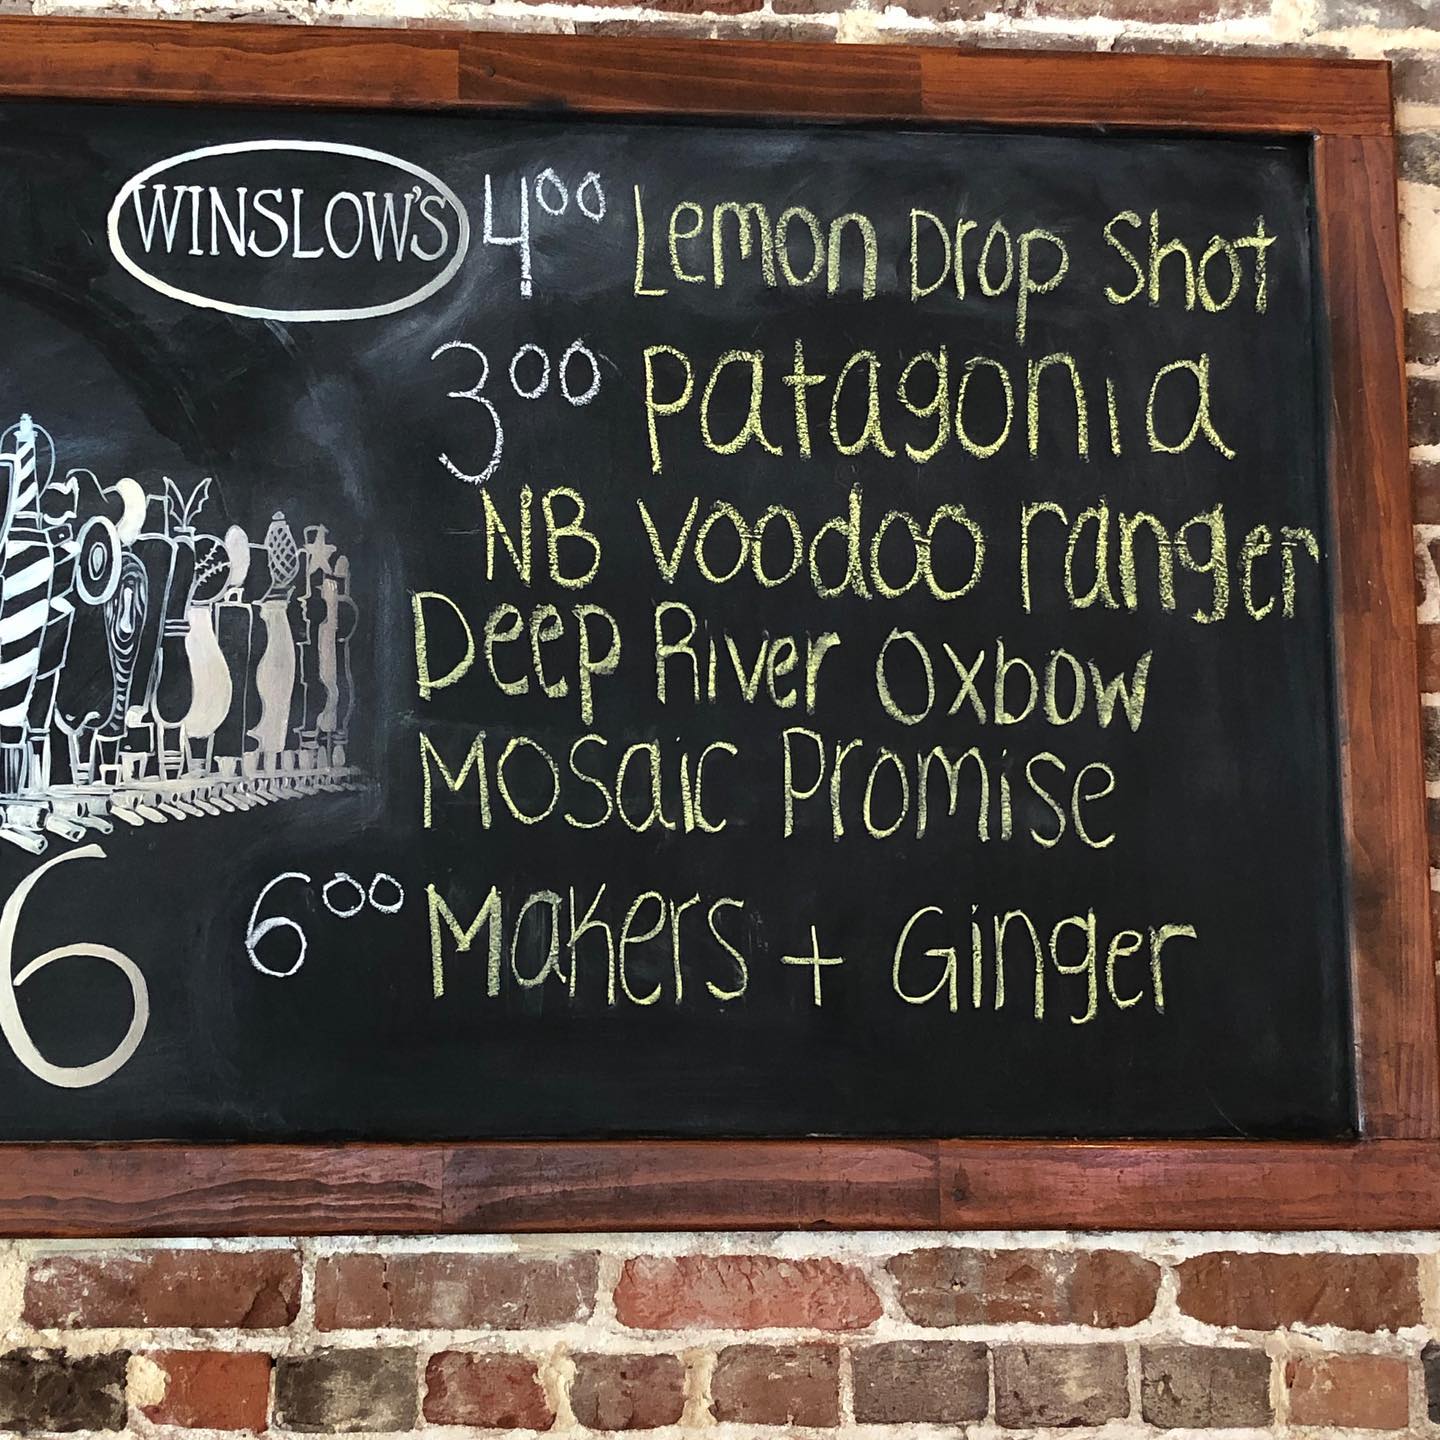 WINSLOW'S
400 Lemon Drop Shot
300 Patagonia
NB Voodoo ranger
Deep River Oxbow
Mosaic Promise
600 Makers + Ginger
6